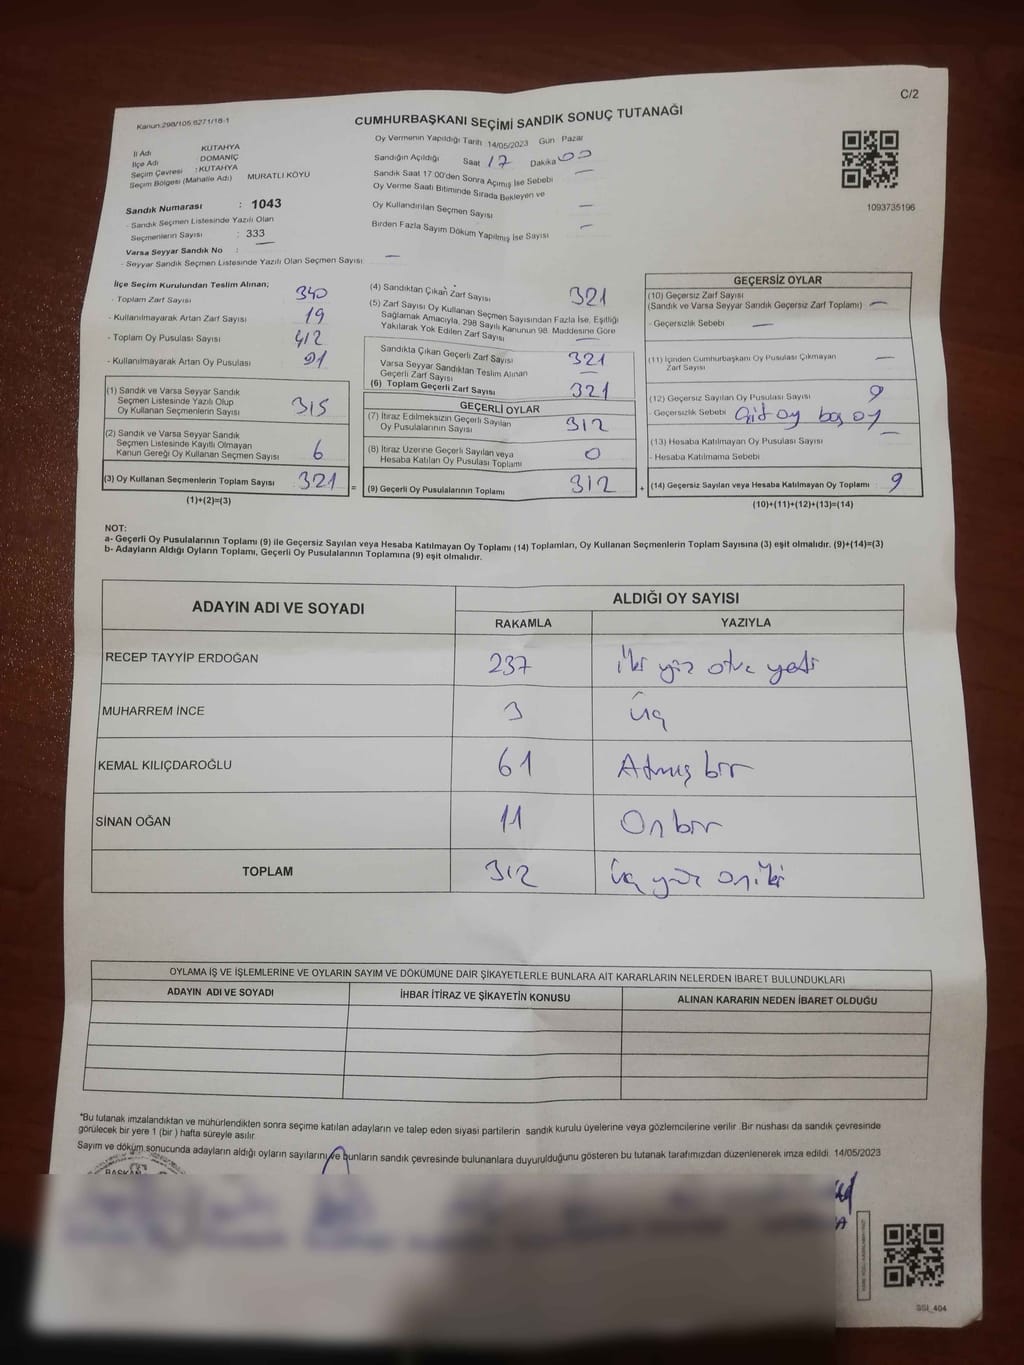 C/2
Kanun:298/105,6271/18-1
CUMHURBAŞKANI SEÇİMİ SANDIK SONUÇ TUTANAĞI
İl Adı KUTAHYA
İlçe Adı DOMANİÇ
Seçim Çevresi : KUTAHYA
Seçim Bölgesi (Mahalle Adı) MURATLI KÖYU
Sandık Numarası : 1043
- Sandık Seçmen Listesinde Yazılı Olan
Seçmenlerin Sayısı : 333
Varsa Seyyar Sandık No :
- Seyyar Sandık Seçmen Listesinde Yazılı Olan Seçmen Sayısı: —
Oy Vermenin Yapıldığı Tarih 14/05/2023 Gün Pazar
Sandığın Açıldığı Saat 17 Dakika 00
Sandık Saat 17:00'den Sonra Açımış İse Sebebi —
Oy Verme Saati Bitiminde Sırada Bekleyen ve
Oy Kullandırılan Seçmen Sayısı —
Birden Fazla Sayım Döküm Yapılmış İse Sayısı —
1093735196
İlçe Seçim Kurulundan Teslim Alınan;
- Toplam Zarf Sayısı 340
- Kullanılmayarak Artan Zarf Sayısı 19
- Toplam Oy Pusulası Sayısı 412
- Kullanılmayarak Artan Oy Pusulası 91
(1) Sandık ve Varsa Seyyar Sandık
Seçmen Listesinde Yazılı Olup
Oy Kullanan Seçmenlerin Sayısı 315
(2) Sandık ve Varsa Seyyar Sandık
Seçmen Listesinde Kayıtlı Olmayan
Kanun Gereği Oy Kullanan Seçmen Sayısı 6
(3) Oy Kullanan Seçmenlerin Toplam Sayısı 321
(1)+(2)=(3)
=
(4) Sandıktan Çıkan Zarf Sayısı 321
(5) Zarf Sayısı Oy Kullanan Seçmen Sayısından Fazla İse, Eşitliği
Sağlamak Amacıyla, 298 Sayılı Kanunun 98. Maddesine Göre
Yakılarak Yok Edilen Zarf Sayısı —
Sandıkta Çıkan Geçerli Zarf Sayısı 321
Varsa Seyyar Sandıktan Teslim Alınan
Geçerli Zarf Sayısı —
(6) Toplam Geçerli Zarf Sayısı 321
GEÇERLİ OYLAR
(7) İtiraz Edilmeksizin Geçerli Sayılan
Oy Pusulalarının Sayısı 312
(8) İtiraz Üzerine Geçerli Sayılan veya
Hesaba Katılan Oy Pusulası Toplamı 0
(9) Geçerli Oy Pusulalarının Toplamı 312
+
GEÇERSİZ OYLAR
(10) Geçersiz Zarf Sayısı
(Sandık ve Varsa Seyyar Sandık Geçersiz Zarf Toplamı) —
- Geçersizlik Sebebi —
(11) İçinden Cumhurbaşkanı Oy Pusulası Çıkmayan
Zarf Sayısı —
(12) Geçersiz Sayılan Oy Pusulası Sayısı 9
- Geçersizlik Sebebi Çift oy boş oy
(13) Hesaba Katılmayan Oy Pusulası Sayısı —
- Hesaba Katılmama Sebebi
(14) Geçersiz Sayılan veya Hesaba Katılmayan Oy Toplamı 9
(10)+(11)+(12)+(13)=(14)
NOT:
a- Geçerli Oy Pusulalarının Toplamı (9) ile Geçersiz Sayılan veya Hesaba Katılmayan Oy Toplamı (14) Toplamları, Oy Kullanan Seçmenlerin Toplam Sayısına (3) eşit olmalıdır. (9)+(14)=(3)
b- Adayların Aldığı Oyların Toplamı, Geçerli Oy Pusulalarının Toplamına (9) eşit olmalıdır.
ADAYIN ADI VE SOYADI ALDIĞI OY SAYISI
RAKAMLA YAZIYLA
RECEP TAYYİP ERDOĞAN 237 İki yüz otuz yedi
MUHARREM İNCE 3 Üç
KEMAL KILIÇDAROĞLU 61 Atmış bir
SİNAN OĞAN 11 On bir
TOPLAM 312 Üç yüz oniki
OYLAMA İŞ VE İŞLEMLERİNE VE OYLARIN SAYIM VE DÖKÜMÜNE DAİR ŞİKAYETLERLE BUNLARA AİT KARARLARIN NELERDEN İBARET BULUNDUKLARI
ADAYIN ADI VE SOYADI İHBAR İTİRAZ VE ŞİKAYETİN KONUSU ALINAN KARARIN NEDEN İBARET OLDUĞU
*Bu tutanak imzalandıktan ve mühürlendikten sonra seçime katılan adayların ve talep eden siyasi partilerin sandık kurulu üyelerine veya gözlemcilerine verilir .Bir nushası da sandık çevresinde
görülecek bir yere 1 (bir ) hafta süreyle asılır
Sayım ve döküm sonucunda adayların aldığı oyların sayılarını ve bunların sandık çevresinde bulunanlara duyurulduğunu gösteren bu tutanak tarafımızdan düzenlenerek imza edildi. 14/05/2023
BAŞKAN
SSI_404